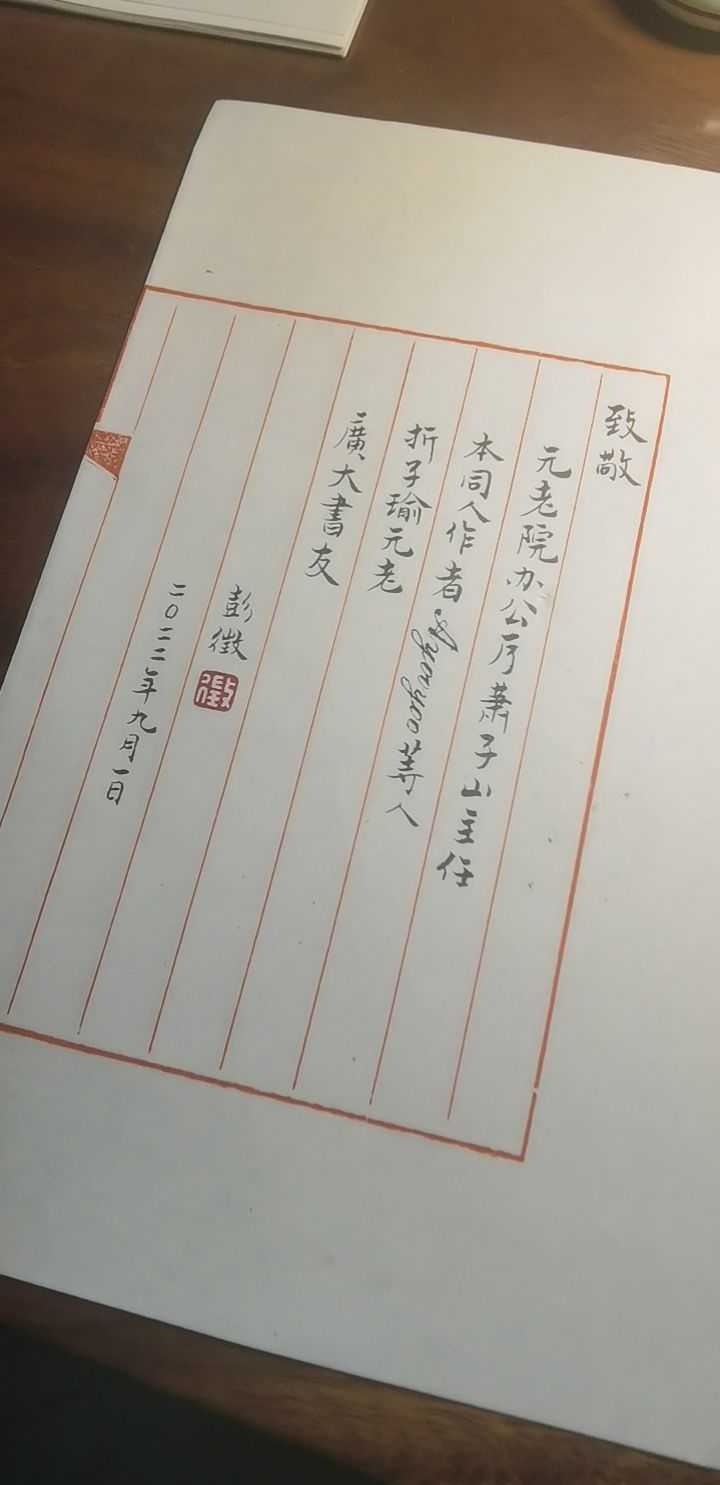 致敬
元老院办公厅蕭子山主任
本同人作者 等人
折子瑜元老
廣大書友
彭徵
二〇二二年九月一日